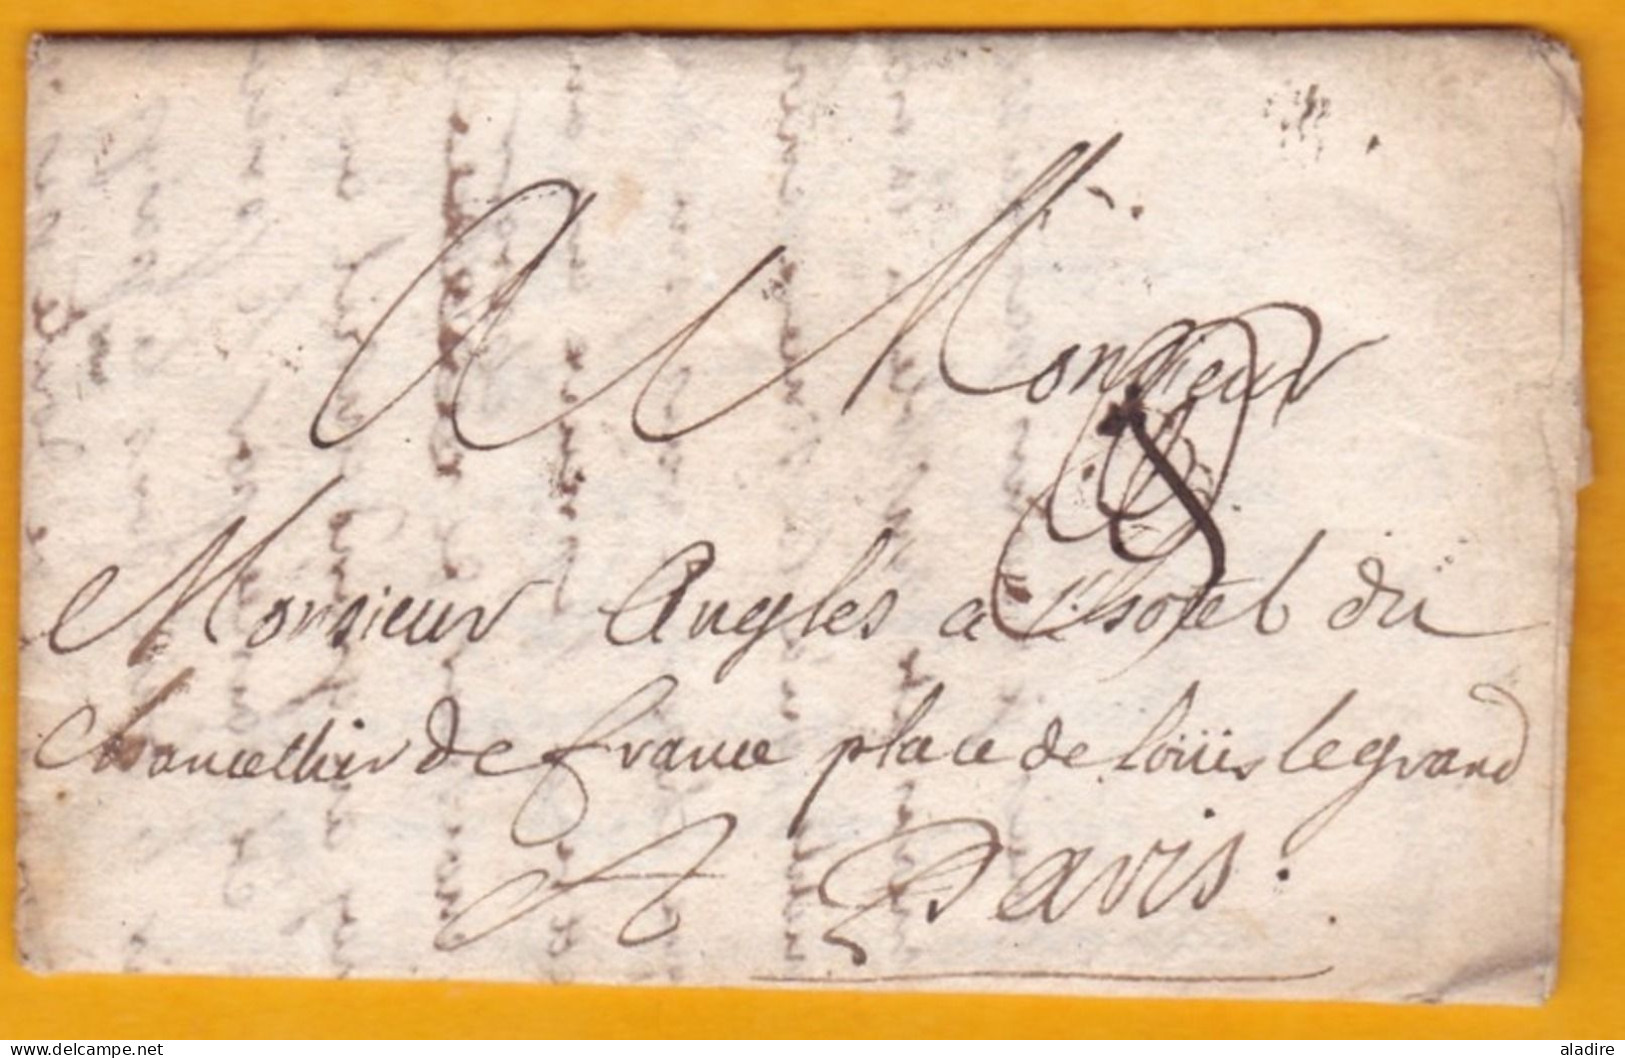 A Monsieur
8
Monsieur Angles a l'hotel du
chancellier de france place de loüis legrand
A Paris.
aladire